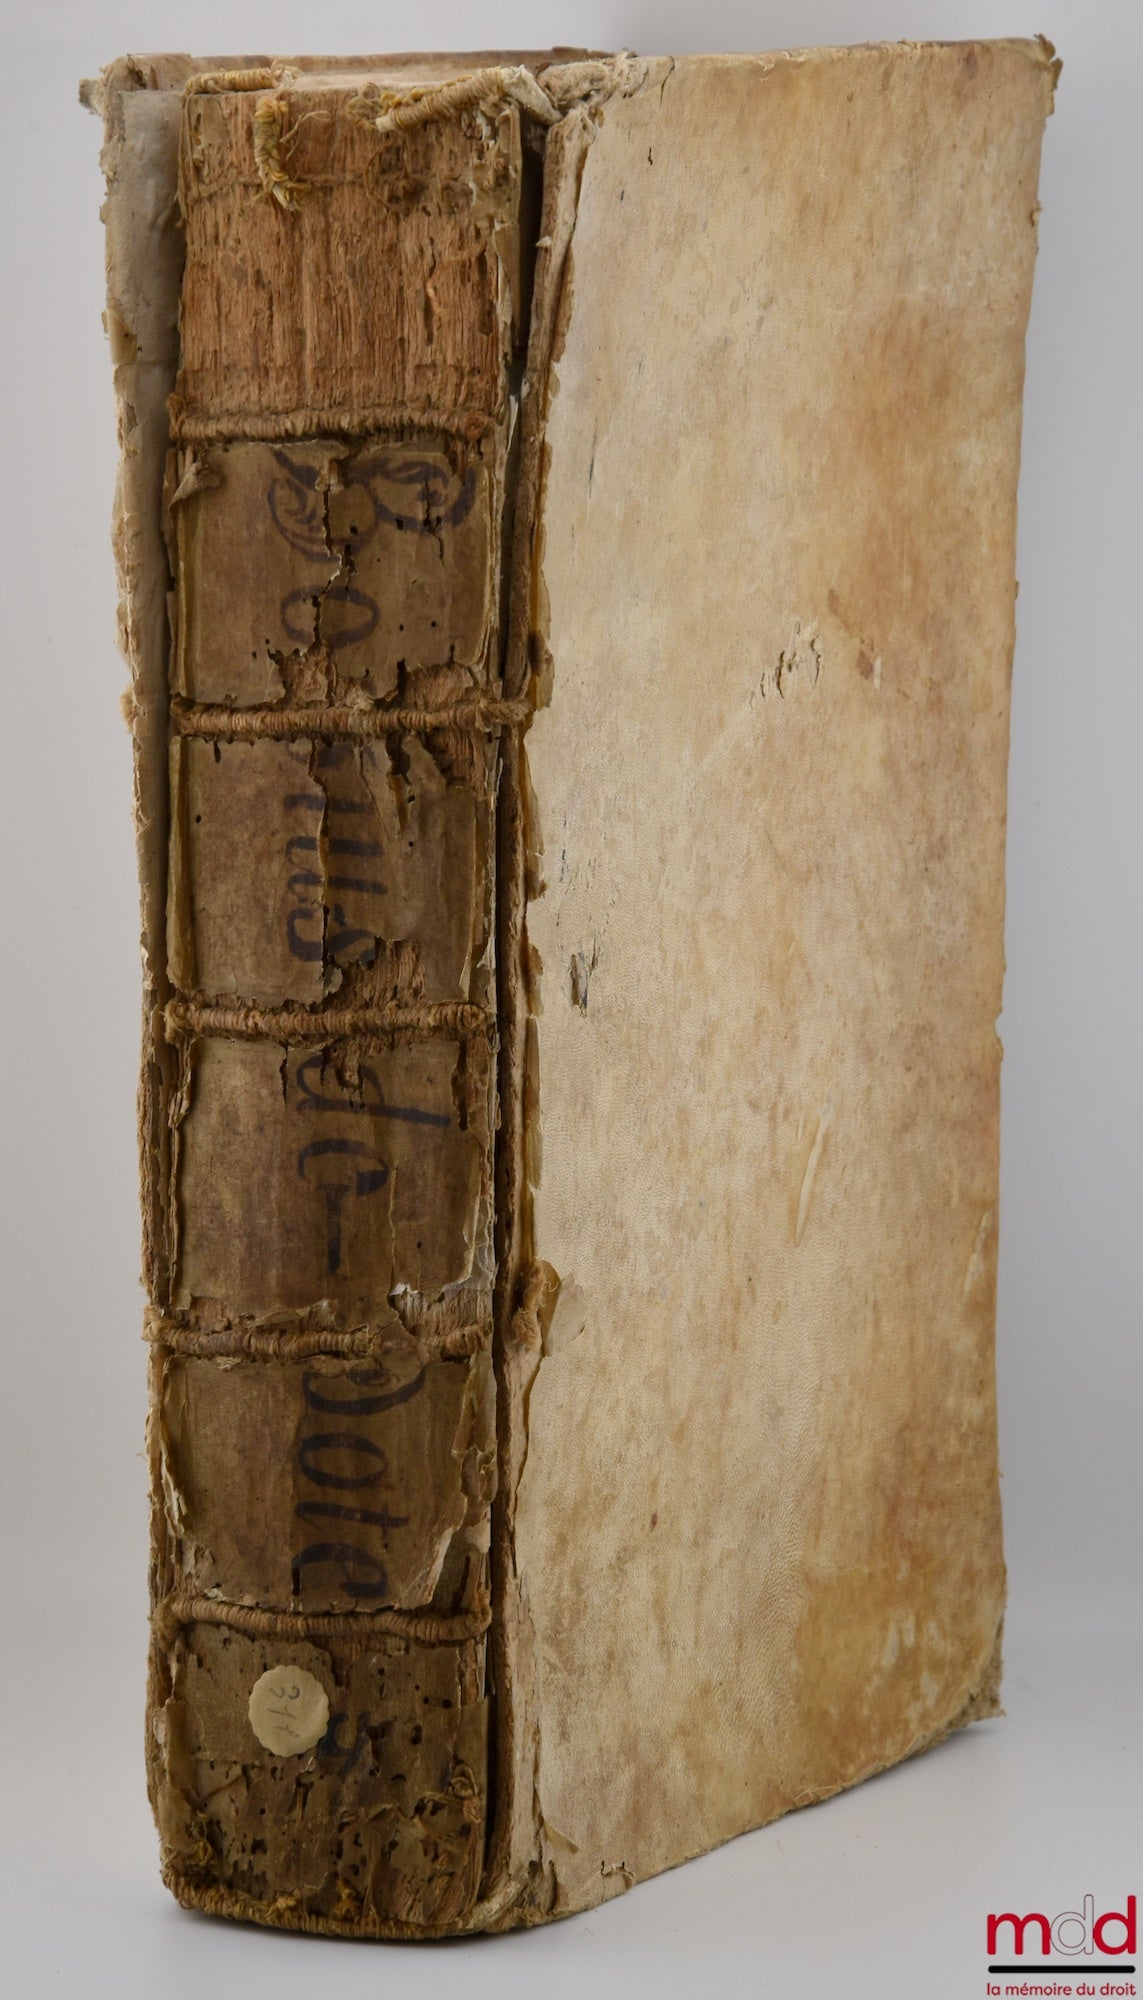 Bonus de Dote
5
318
mdd
la mémoire du droit